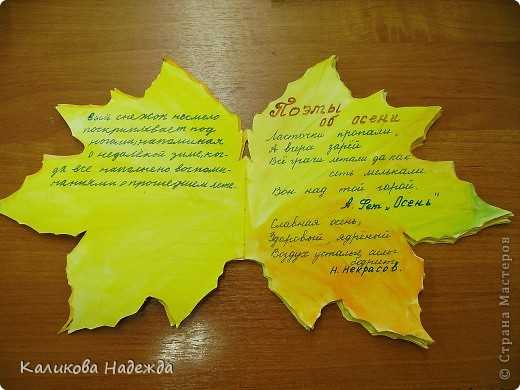 вый снежок несмело
поскрипывает под
ногами, напоминая
о недалёкой зиме, ко-
гда всё наполнено воспоми-
наниями о прошедшем лете.
Поэты
об осени
Ласточки пропали,
А вчера зарёй
Всё грачи летали да как
сеть мелькали
Вон над той горой.
А. Фет „Осень"
Славная осень,
Здоровый, ядрёный
Воздух усталые силы
бодрит.
Н. Некрасов.
Каликова Надежда
© Страна Мастеров